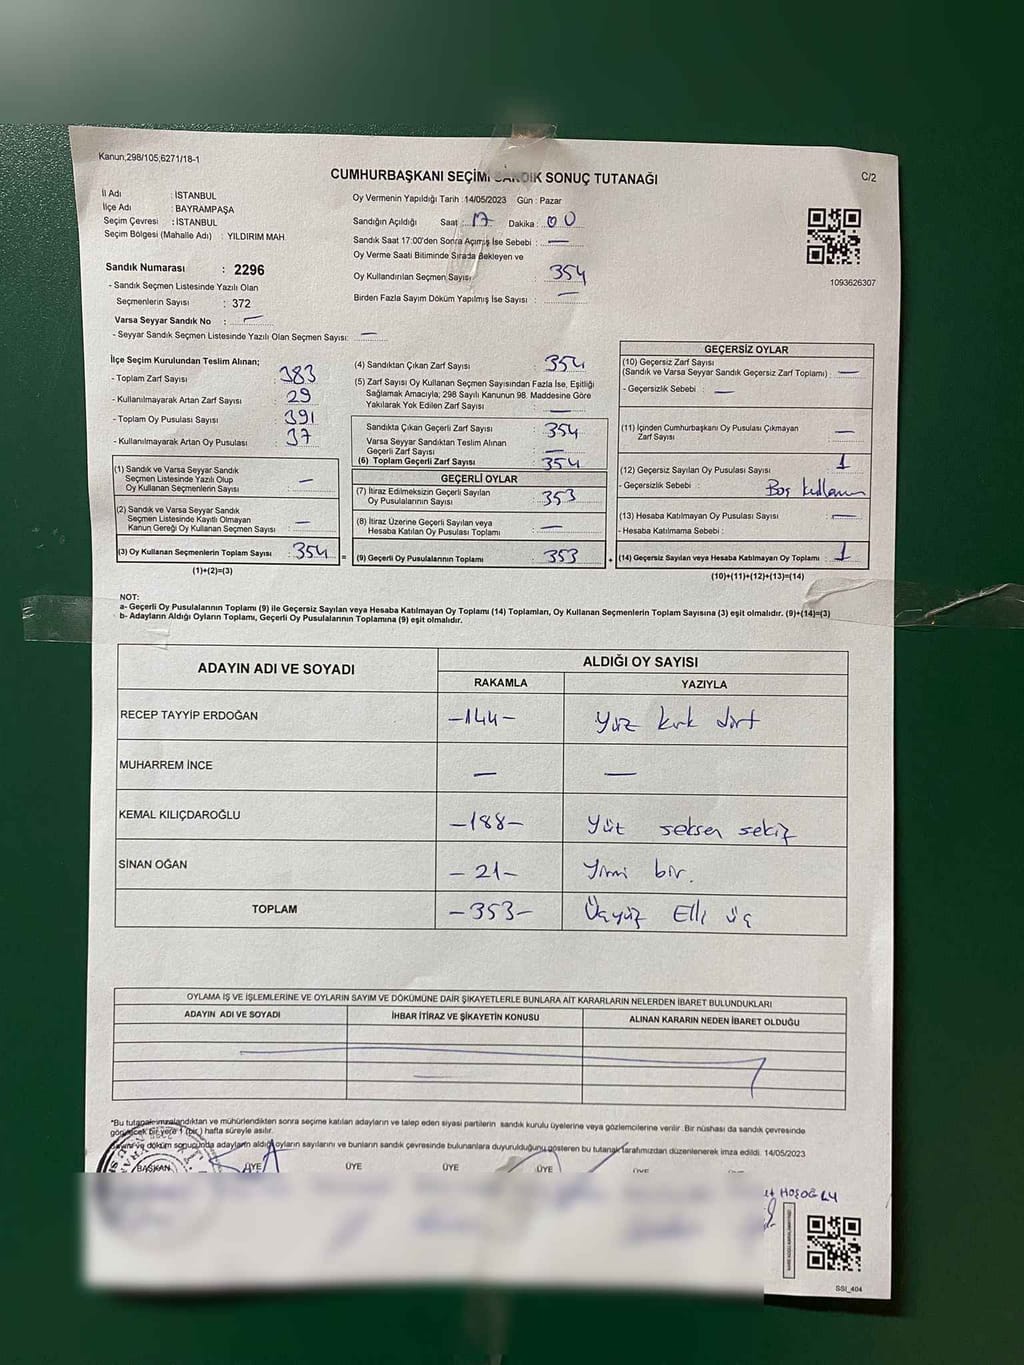 Kanun,298/105,6271/18-1
CUMHURBAŞKANI SEÇİMİ SANDIK SONUÇ TUTANAĞI
C/2
İl Adı : İSTANBUL
İlçe Adı : BAYRAMPAŞA
Seçim Çevresi : İSTANBUL
Seçim Bölgesi (Mahalle Adı) : YILDIRIM MAH
Sandık Numarası : 2296
- Sandık Seçmen Listesinde Yazılı Olan
Seçmenlerin Sayısı : 372
Varsa Seyyar Sandık No : —
- Seyyar Sandık Seçmen Listesinde Yazılı Olan Seçmen Sayısı: —
Oy Vermenin Yapıldığı Tarih :14/05/2023 Gün : Pazar
Sandığın Açıldığı Saat : 17 Dakika : 00
Sandık Saat 17:00'den Sonra Açımış İse Sebebi : —
Oy Verme Saati Bitiminde Sırada Bekleyen ve
Oy Kullandırılan Seçmen Sayısı : 354
Birden Fazla Sayım Döküm Yapılmış İse Sayısı : —
1093626307
İlçe Seçim Kurulundan Teslim Alınan;
- Toplam Zarf Sayısı : 383
- Kullanılmayarak Artan Zarf Sayısı : 29
- Toplam Oy Pusulası Sayısı : 391
- Kullanılmayarak Artan Oy Pusulası : 37
(1) Sandık ve Varsa Seyyar Sandık
Seçmen Listesinde Yazılı Olup
Oy Kullanan Seçmenlerin Sayısı : —
(2) Sandık ve Varsa Seyyar Sandık
Seçmen Listesinde Kayıtlı Olmayan
Kanun Gereği Oy Kullanan Seçmen Sayısı : —
(3) Oy Kullanan Seçmenlerin Toplam Sayısı : 354 =
(1)+(2)=(3)
(4) Sandıktan Çıkan Zarf Sayısı : 354
(5) Zarf Sayısı Oy Kullanan Seçmen Sayısından Fazla İse, Eşitliği
Sağlamak Amacıyla; 298 Sayılı Kanunun 98. Maddesine Göre
Yakılarak Yok Edilen Zarf Sayısı : —
Sandıkta Çıkan Geçerli Zarf Sayısı : 354
Varsa Seyyar Sandıktan Teslim Alınan
Geçerli Zarf Sayısı : —
(6) Toplam Geçerli Zarf Sayısı : 354
GEÇERLİ OYLAR
(7) İtiraz Edilmeksizin Geçerli Sayılan
Oy Pusulalarının Sayısı : 353
(8) İtiraz Üzerine Geçerli Sayılan veya
Hesaba Katılan Oy Pusulası Toplamı : —
(9) Geçerli Oy Pusulalarının Toplamı : 353 +
GEÇERSİZ OYLAR
(10) Geçersiz Zarf Sayısı
(Sandık ve Varsa Seyyar Sandık Geçersiz Zarf Toplamı) : —
- Geçersizlik Sebebi : —
(11) İçinden Cumhurbaşkanı Oy Pusulası Çıkmayan
Zarf Sayısı : —
(12) Geçersiz Sayılan Oy Pusulası Sayısı : 1
- Geçersizlik Sebebi : Boş kullanım
(13) Hesaba Katılmayan Oy Pusulası Sayısı : —
- Hesaba Katılmama Sebebi :
(14) Geçersiz Sayılan veya Hesaba Katılmayan Oy Toplamı : 1
(10)+(11)+(12)+(13)=(14)
NOT:
a- Geçerli Oy Pusulalarının Toplamı (9) ile Geçersiz Sayılan veya Hesaba Katılmayan Oy Toplamı (14) Toplamları, Oy Kullanan Seçmenlerin Toplam Sayısına (3) eşit olmalıdır. (9)+(14)=(3)
b- Adayların Aldığı Oyların Toplamı, Geçerli Oy Pusulalarının Toplamına (9) eşit olmalıdır.
ADAYIN ADI VE SOYADI ALDIĞI OY SAYISI
RAKAMLA YAZIYLA
RECEP TAYYİP ERDOĞAN -144- Yüz kırk dört
MUHARREM İNCE — —
KEMAL KILIÇDAROĞLU -188- Yüz seksen sekiz
SİNAN OĞAN -21- Yirmi bir.
TOPLAM -353- Üçyüz Elli üç
OYLAMA İŞ VE İŞLEMLERİNE VE OYLARIN SAYIM VE DÖKÜMÜNE DAİR ŞİKAYETLERLE BUNLARA AİT KARARLARIN NELERDEN İBARET BULUNDUKLARI
ADAYIN ADI VE SOYADI İHBAR İTİRAZ VE ŞİKAYETİN KONUSU ALINAN KARARIN NEDEN İBARET OLDUĞU
*Bu tutanak imzalandıktan ve mühürlendikten sonra seçime katılan adayların ve talep eden siyasi partilerin sandık kurulu üyelerine veya gözlemcilerine verilir. Bir nüshası da sandık çevresinde
görülecek bir yere 1 (bir ) hafta süreyle asılır.
Sayım ve döküm sonucunda adayların aldığı oyların sayılarını ve bunların sandık çevresinde bulunanlara duyurulduğunu gösteren bu tutanak tarafımızdan düzenlenerek imza edildi. 14/05/2023
BAŞKAN ÜYE ÜYE ÜYE ÜYE ÜYE
HOŞOĞLU
SSI_404